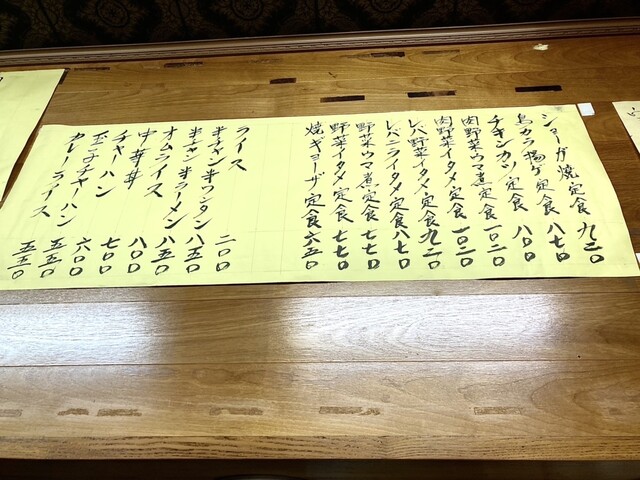 ショーガ焼定食 九二〇
鳥カラ揚ゲ定食 八七〇
チキンカツ定食 八〇〇
肉野菜ウマ煮定食 一〇二〇
肉野菜イタメ定食 一〇二〇
レバ野菜イタメ定食 九二〇
レバニライタメ定食 八七〇
野菜ウマ煮定食 七七〇
野菜イタメ定食 七七〇
焼ギョーザ定食 六五〇
ライス 二〇〇
半チャン半ワンタン 八五〇
半チャン半ラーメン 八五〇
オムライス 八五〇
中華丼 八〇〇
チャーハン 七〇〇
玉子チャーハン 六〇〇
カレーライス 五五〇
五五〇